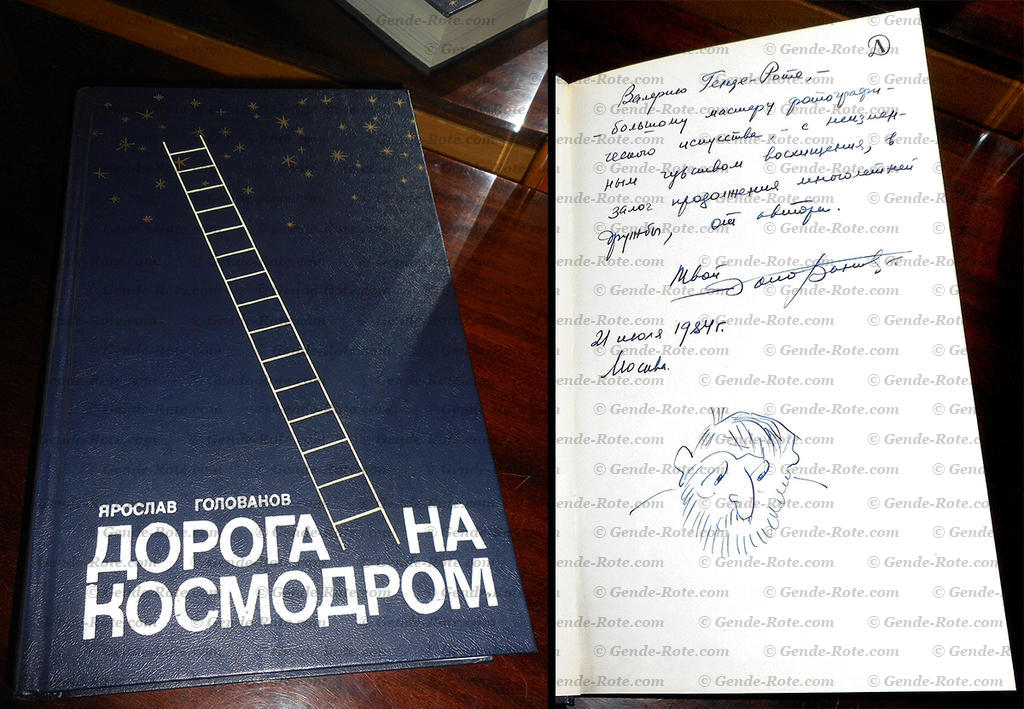 ЯРОСЛАВ ГОЛОВАНОВ
ДОРОГА НА
КОСМОДРОМ
Д
Валерию Генде-Роте, –
– большому мастеру фотографи-
ческого искусства, – с неизмен-
ным чувством восхищения, в
залог продолжения многолетней
дружбы, от автора.
Твой Голованов
21 июля 1984 г.
Москва.
© Gende-Rote.com